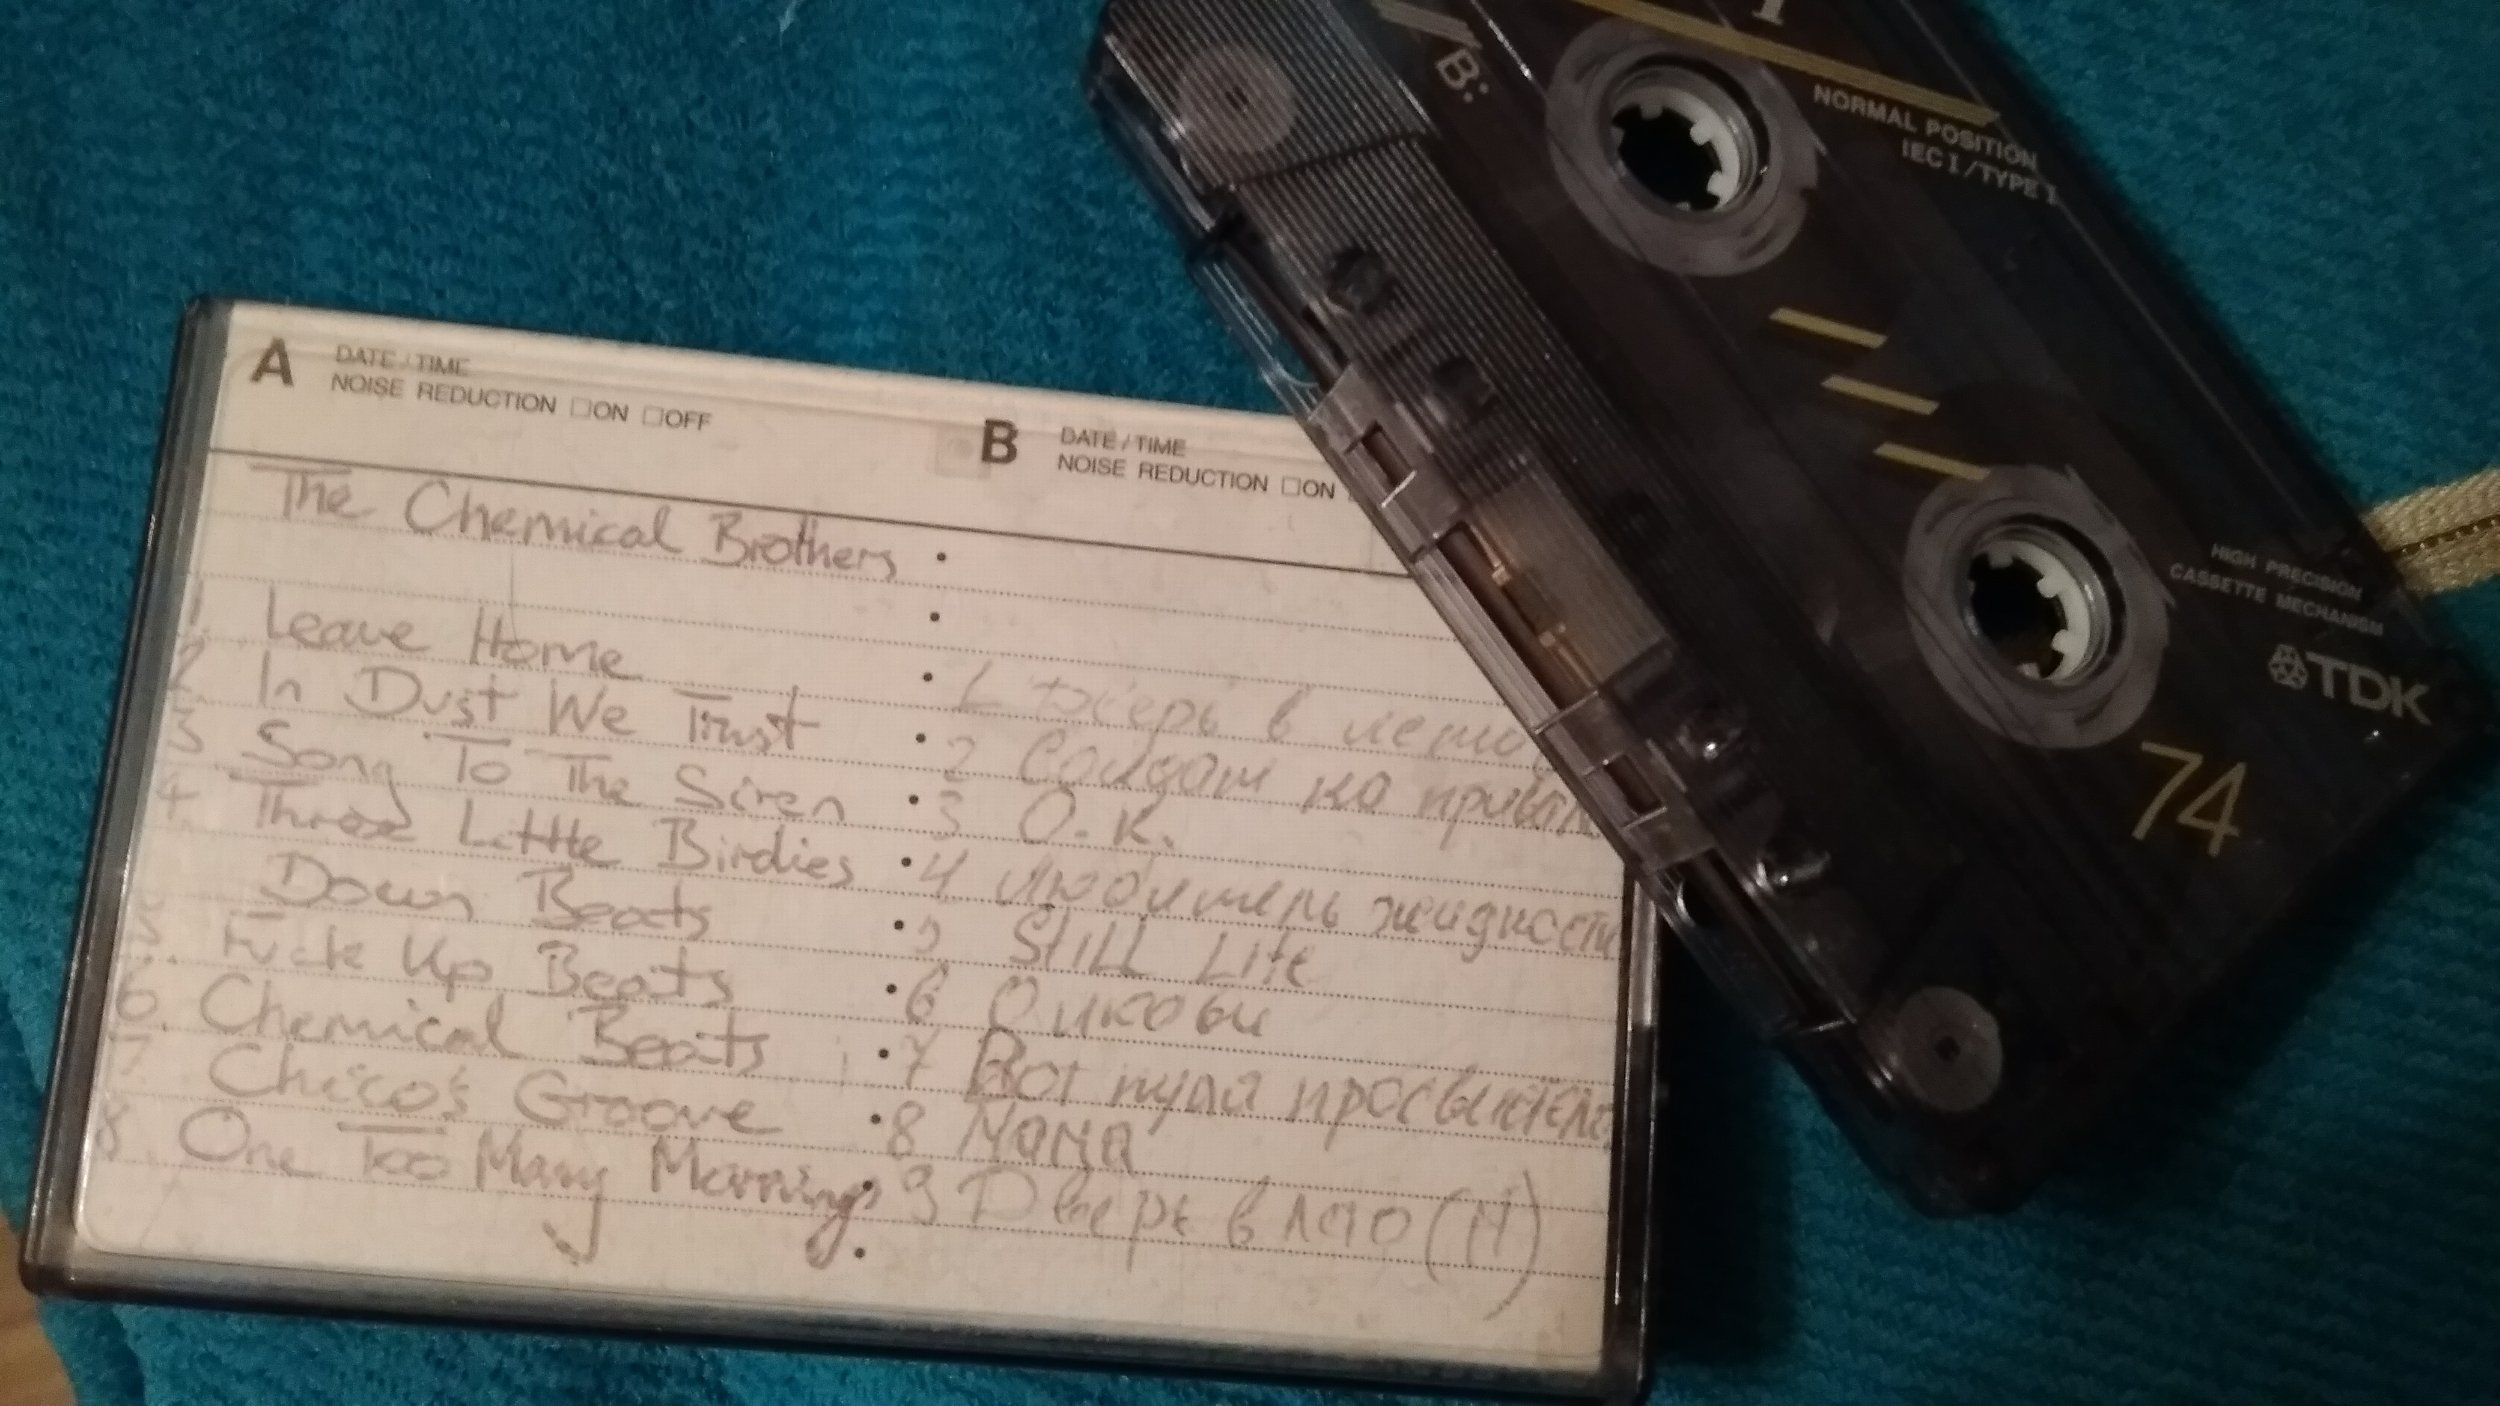 A DATE / TIME
NOISE REDUCTION □ON □OFF
The Chemical Brothers
1 Leave Home
2. In Dust We Trust
3 Song To The Siren
4. Three Little Birdies
Down Beats
5. Fuck Up Beats
6. Chemical Beats
7 Chico's Groove
8. One Too Many Mornings
B DATE / TIME
NOISE REDUCTION □ON
1 Дверь в лето
2 Солдат на
3 О.К.
4 Любитель жидкости
5 Still Life
6 Оковы
7 Вот пуля
8 Мама
9 Дверь в лето (II)
B:
NORMAL POSITION
IEC I / TYPE I
HIGH PRECISION
CASSETTE MECHANISM
TDK
74